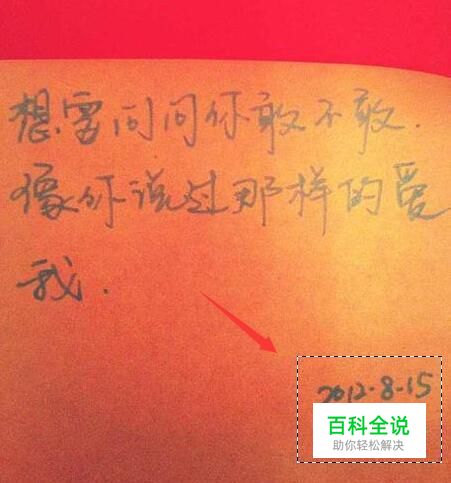 想要问问你敢不敢.
像你说过那样的爱
我.
2012-8-15
百科全说
助你轻松解决